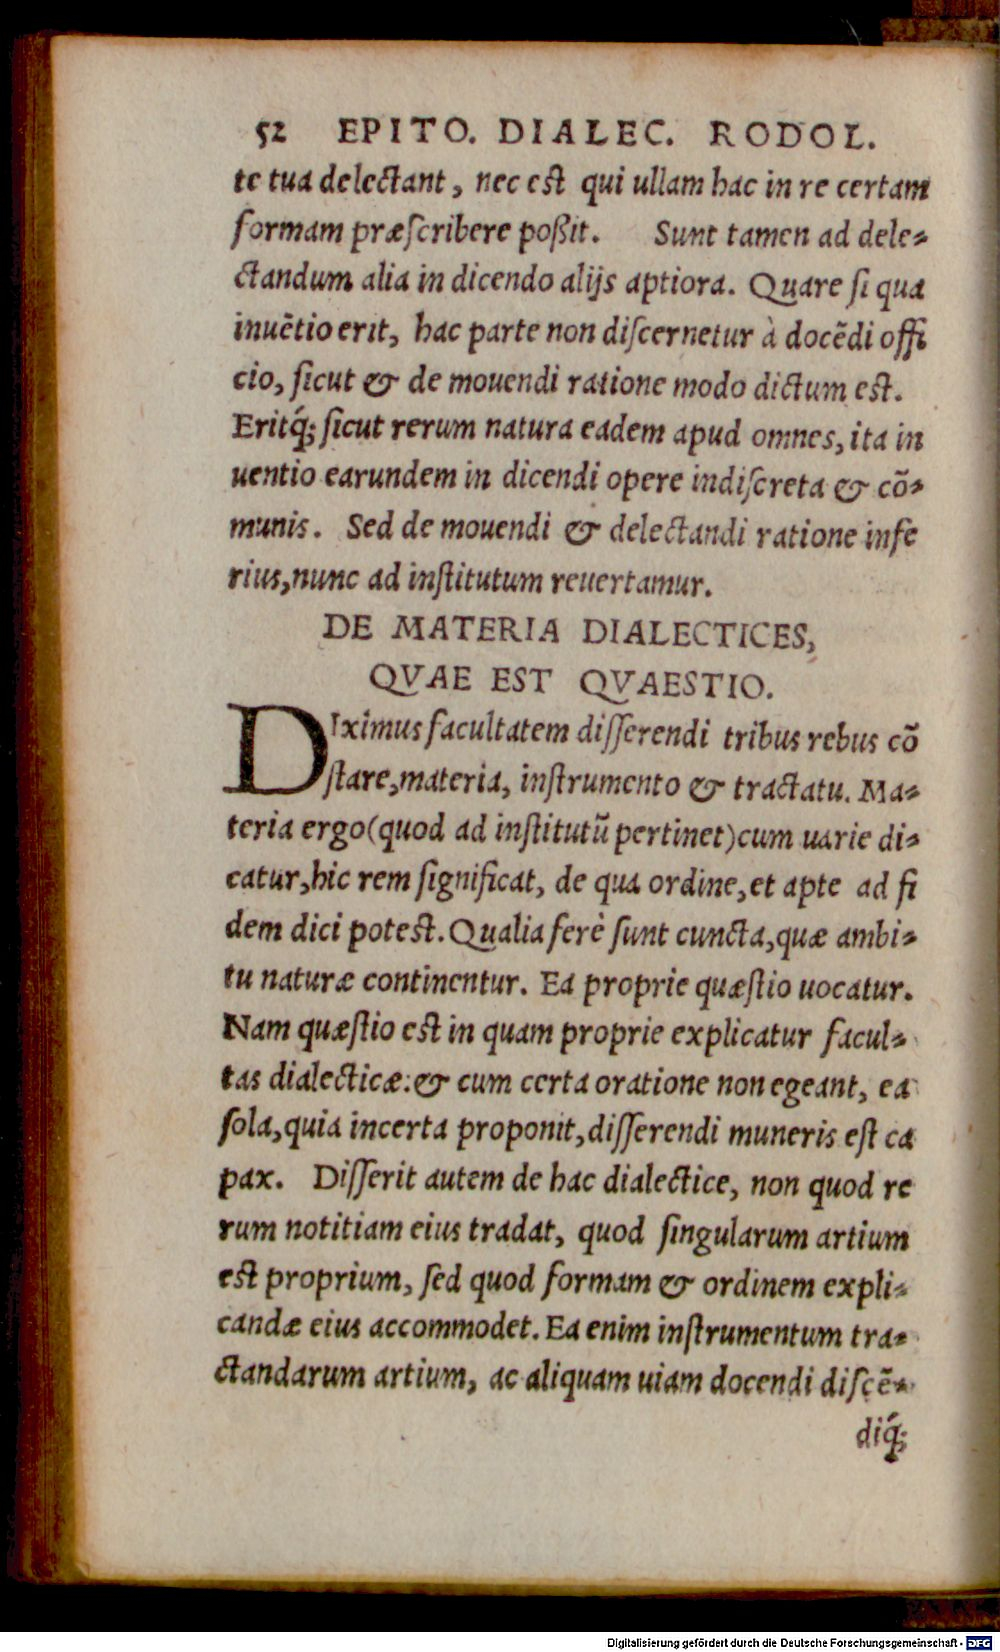 52 EPITO. DIALEC. RODOL.
te tua delectant, nec est qui ullam hac in re certam
formam præſcribere poßit. Sunt tamen ad dele-
ctandum alia in dicendo alijs aptiora. Quare ſi qua
inuẽtio erit, hac parte non diſcernetur à docẽdi offi
cio, ſicut & de mouendi ratione modo dictum est.
Eritq́; ſicut rerum natura eadem apud omnes, ita in
uentio earundem in dicendi opere indiſcreta & cõ-
munis. Sed de mouendi & delectandi ratione infe
rius, nunc ad inſtitutum reuertamur.
DE MATERIA DIALECTICES,
QVAE EST QVAESTIO.
DIximus facultatem diſſerendi tribus rebus cõ
ſtare, materia, inſtrumento & tractatu. Ma-
teria ergo (quod ad inſtitutũ pertinet) cum uarie di-
catur, hic rem ſignificat, de qua ordine, et apte ad fi
dem dici poteſt. Qualia ferè ſunt cuncta, quæ ambi-
tu naturæ continentur. Ea proprie quæſtio uocatur.
Nam quæſtio eſt in quam proprie explicatur facul-
tas dialecticæ: & cum certa oratione non egeant, ea
ſola, quia incerta proponit, diſſerendi muneris eſt ca
pax. Diſſerit autem de hac dialectice, non quod re
rum notitiam eius tradat, quod ſingularum artium
eſt proprium, ſed quod formam & ordinem expli-
candæ eius accommodet. Ea enim inſtrumentum tra-
ctandarum artium, ac aliquam uiam docendi diſcẽ-
diq́;
Digitalisierung gefördert durch die Deutsche Forschungsgemeinschaft - DFG